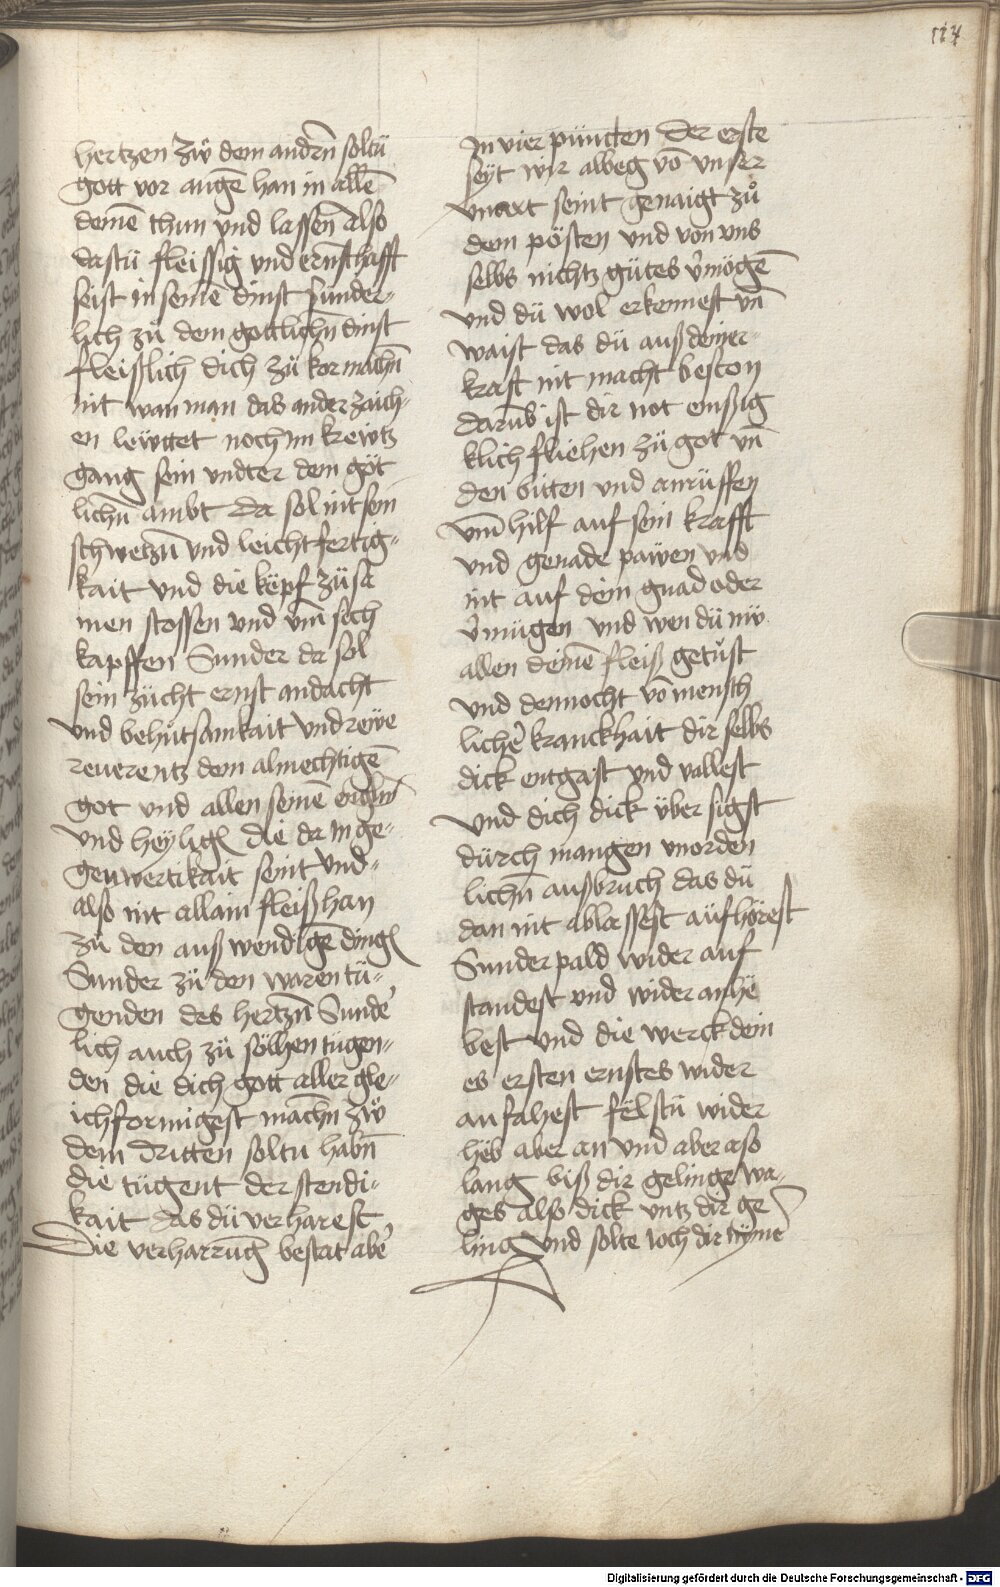 114
hertzen Zẘ dem andrñ soltü
gott vor augē han in allē
deinē thun vnd lassen Also
dastü fleissig vnd ernsthafft
seist in seinē dinst Sunder-
lich zü dem gottlichñ dinst
fleißlich dich zü kor machñ
nit wan man das ander zaich-
en lewttet noch im krewtz
gang sein vndter dem göt
lichñ ambt Da sol nit sein
schwetzñ vnd leichtfertig-
kait vnd die köpf züsa
men stossen vnd vm̄ sech
kapffen Sunder da sol
sein zücht ernst andacht
vnd behůtsamkait vnd rewe
reuerentz dem almechtigē
got vnd allen seinē engln̄
vnd heylign̄ die da in ge-
genwertikait seint Vnd-
also nit allain fleiß han
zü den auß wendigē dingn̄
Sunder zü den waren tü-
genden des hertzñ Sunde͛
lich auch zü söllhen tügen-
den die dich gott aller gle-
ichformigest machñ Zẘ
dem dritten soltu habñ
die tügent der stendi-
kait das dü verharest
Die verharrūg bestat abe͛
In vier püncten Der erste
seyt wir albeg vō vnser
vnaxt seint genaigt zů
dem pösten vnd von vns
selbs nichtz gütes v͛mögē
vnd dü wol erkennest vn̄
waist das dü auß deiner-
kraft nit macht beston
darūb ist dir not emßig
klich fliehen zü got vn̄
den bitten vnd anrüffen
vm̄ hilf auf sein krafft
vnd genade pawen vnd
nit auf dein gnad oder
v͛mügen vnd wen dü mit
allen deinē fleiß getůst
vnd dennocht vō mensch
liche͛ kranckhait dir selbs
dick entgast vnd vallest
vnd dich dick über sigst
dürch mangen vnorden
lichñ außbruch das dü
dan nit ablassest aüfhörest
Sunder pald wider auf
standest vnd wider anhe
best vnd die werck dein
es ersten ernstes wider
anfahest felstü wider
heb aber an vnd aber aso
lang biß dir gelinge wa-
ges also dick vntz dir ge
ling vnd solte ioch dir nyme͛
Digitalisierung gefördert durch die Deutsche Forschungsgemeinschaft - DFG